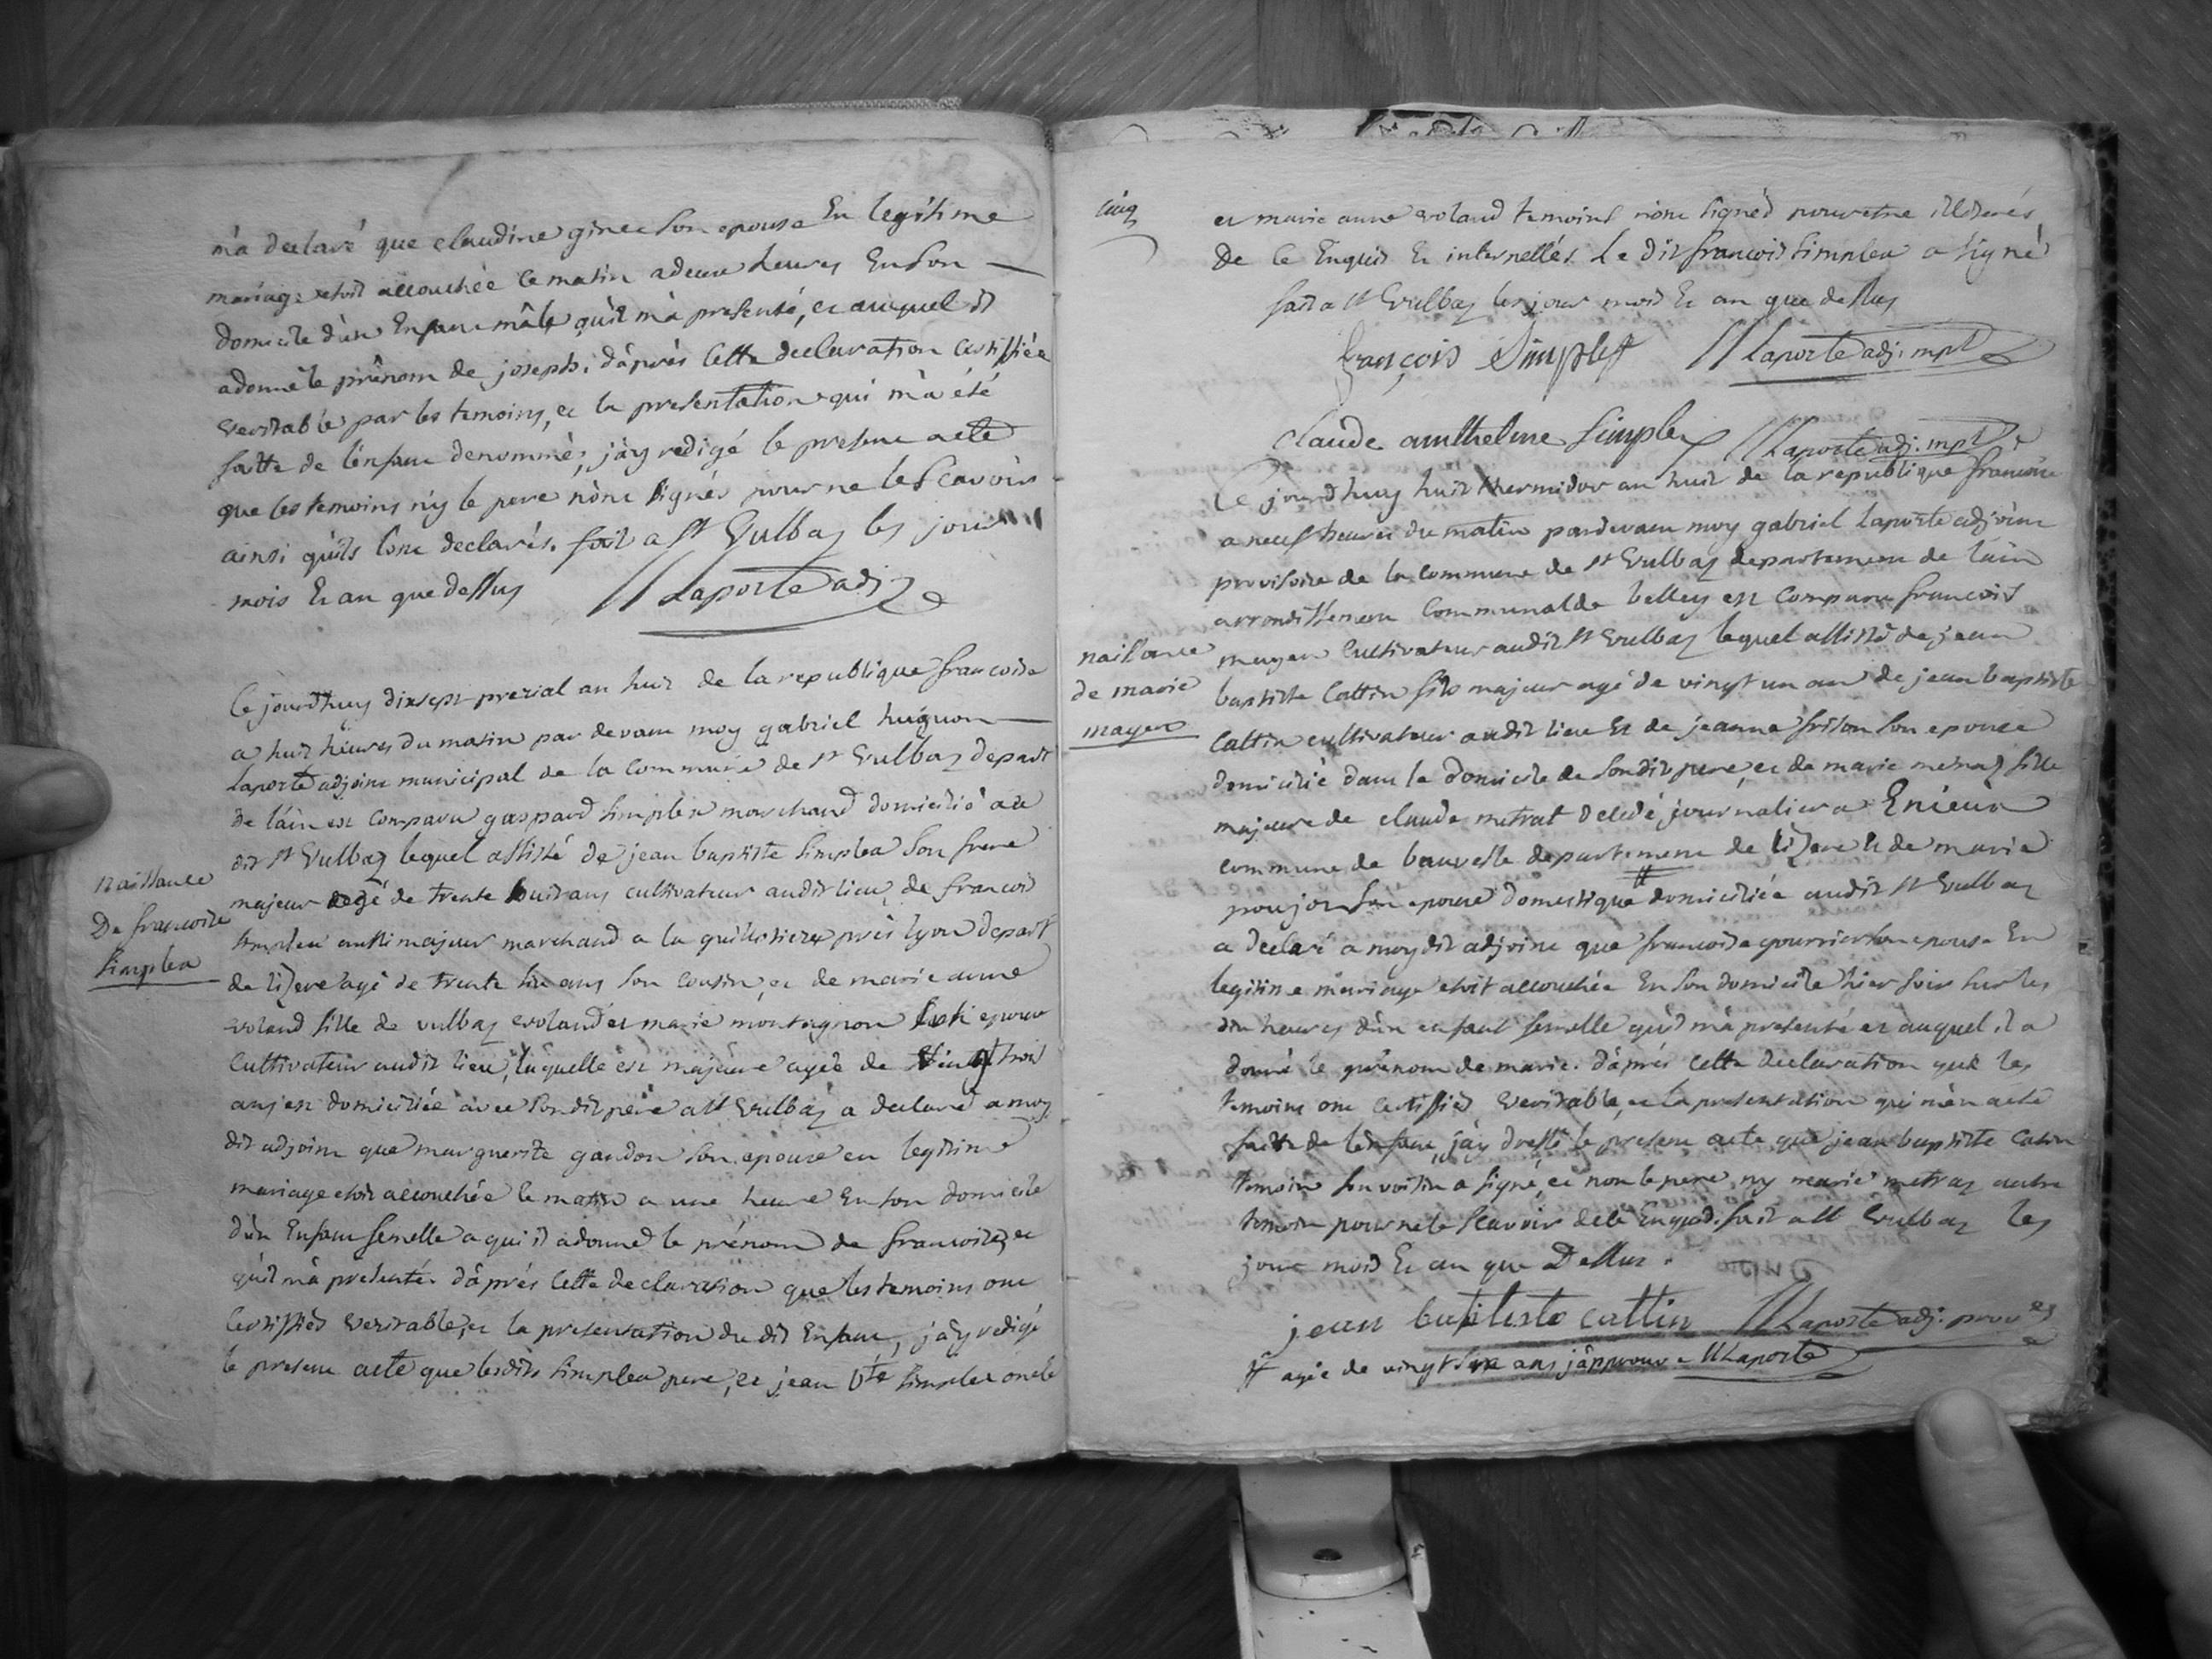 m'a declaré que claudine ginet son epouse En legitime
mariage etoit accouchée ce matin a deux heures En son
domicile d'un Enfant mâle qu'il m'a presenté, et auquel il
a donné le prénom de joseph. d'après cette declaration certiffiée
veritable par les temoins, et la presentation qui m'a été
faitte de l'enfant denommé, j'ay redigé le present acte
que les temoins n'y le pere n'ont signés pour ne le scavoir
ainsi qu'ils l'ont declarés. fait a st Vulbas les jour
mois Et an que dessus Laporte adj
Ce jourd'huy dix sept prerial an huit de la republique francoise
a huit heures du matin par devant moy gabriel hugnon
Laporte adjoint municipal de la Commune de st Vulbas depart
de l'ain est comparu gaspard simplex marchand domicilié au
dit st Vulbas lequel assisté de jean baptiste simplex son frere
majeur agé de trente huit ans cultivateur audit lieu, de francois
simplex aussi majeur marchand a la guillotiere près lyon depart
de lizere agé de trente six ans son cousin, et de marie anne
voland fille de vulbas voland et marie montagnon epoux
cultivateur audit lieu, laquelle est majeure agée de vingt trois
ans et domiciliée avec son dit pere a st vulbas a declaré a moy
dit adjoint que marguerite gandon son epouse en legitime
mariage etoit accouchée ce matin a une heure En son domicile
d'un Enfant femelle a qui il a donné le prénom de francoise, et
qu'il m'a presenté. d'après cette declaration que les temoins ont
certiffiés veritable, et la presentation du dit Enfant, j'ay redigé
le present acte que lesdits simplex pere, et jean bte simplex oncle
naissance
De francoise
simplex
cinq
et marie anne voland temoins n'ont signés pour etre illiterés
de ce Enquis Et interpellés. Le dit francois simplex a signé
fait a st Vulbas les jour mois Et an que dessus
françois Simplex Laporte adj. mpl
Claude anthelme simplex Laporte adj. mpl
Ce jourd'huy huit thermidor an huit de la republique francoise
a neuf heures du matin pardevant moy gabriel Laporte adjoint
provisoire de la commune de st Vulbas departement de l'ain
arrondissement Communal de belley est comparu francois
mayen cultivateur audit st Vulbas lequel assisté de jean
baptiste Cattin fils majeur agé de vingt un an de jean baptiste
Cattin cultivateur audit lieu Et de jeanne frison son epouse
domicilié dans le domicile de son dit pere, et de marie metraz fille
majeure de claude metrat decedé journalier a Enieux
commune de bouvesse departement de lizere et de marie
poujon son epouse domestique # domiciliée audit st Vulbas
a declaré a moy dit adjoint que francoise son epouse En
legitime mariage etoit accouchée En son domicile hier soir sur les
dix heures d'un enfant femelle qu'il m'a presenté et auquel il a
donné le prénom de marie. d'après cette declaration que les
temoins ont certiffiés veritable, et la presentation qui m'en a eté
faitte de l'enfant, j'ay dressé le present acte que jean baptiste Catin
temoin son voisin a signé, et non le pere, ny marie metraz autre
temoin pour ne le scavoir de ce Enquis. fait a st vulbas les
jour mois Et an que Dessus.
jean baptiste cattin Laporte adj. prov.
# agée de vingt six ans j'approuve Laporte
naissance
de marie
mayen